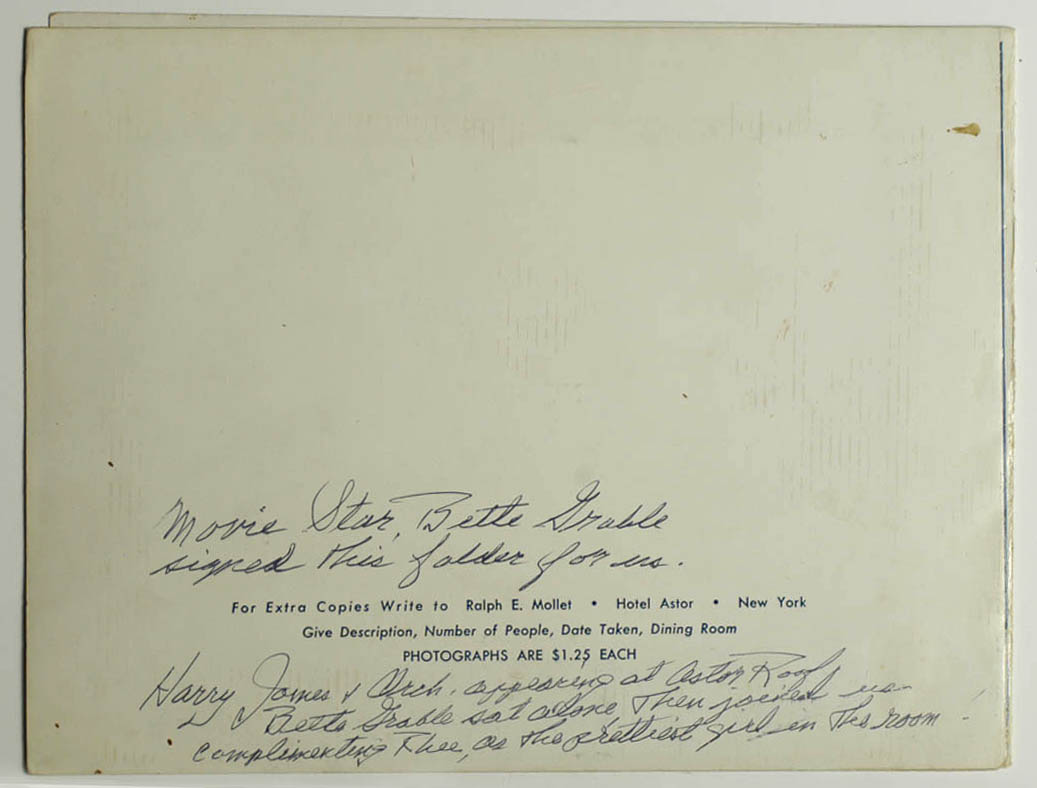 Movie Star, Bette Grable
signed this folder for us.
For Extra Copies Write to Ralph E. Mollet • Hotel Astor • New York
Give Description, Number of People, Date Taken, Dining Room
PHOTOGRAPHS ARE $1.25 EACH
Harry James & Orch. appearing at Astor Roof
Bette Grable sat alone then joined us
complimenting Thee, as the prettiest girl in the room